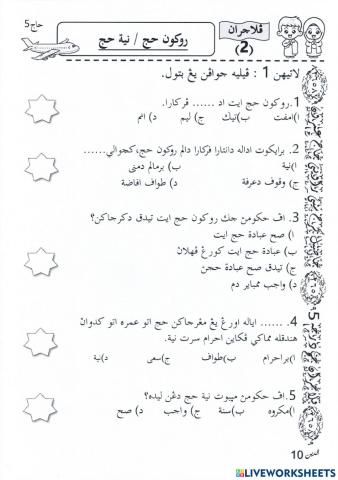 حاج 5
ڤلاجران
(2)
روكون حج / نية حج
لاتيهن 1 : ڤيليه جواڤن يڠ بتول.
1. روكون حج ايت اد ...... ڤركارا.
ا) امڤت ب) انيك ج) ليم د) انم
2. برايكوت اداله دانتارا ڤركارا دالم روكون حج، كچوالي......
ا) نية ب) برمالم دمنى
ج) وقوف دعرفة د) طواف افاضة
3. اڤ حكومن جك روكون حج ايت تيدق دكرجاكن؟
ا) صح عبادة حج ايت
ب) عبادة حج ايت كورڠ ڤهلان
ج) تيدق صح عبادة حجن
د) واجب ممباير دم
4. ...... اياله اورڠ يڠ مڠرجاكن حج اتو عمره اتو كدوان
هندقله مماكي ڤكاين احرام سرت نية.
ا) براحرام ب) طواف ج) سعي د) نية
5. اڤ حكومن مڽبوت نية حج دڠن ليده؟
ا) مكروه ب) سنة ج) واجب د) صح
5
10
LIVEWORKSHEETS